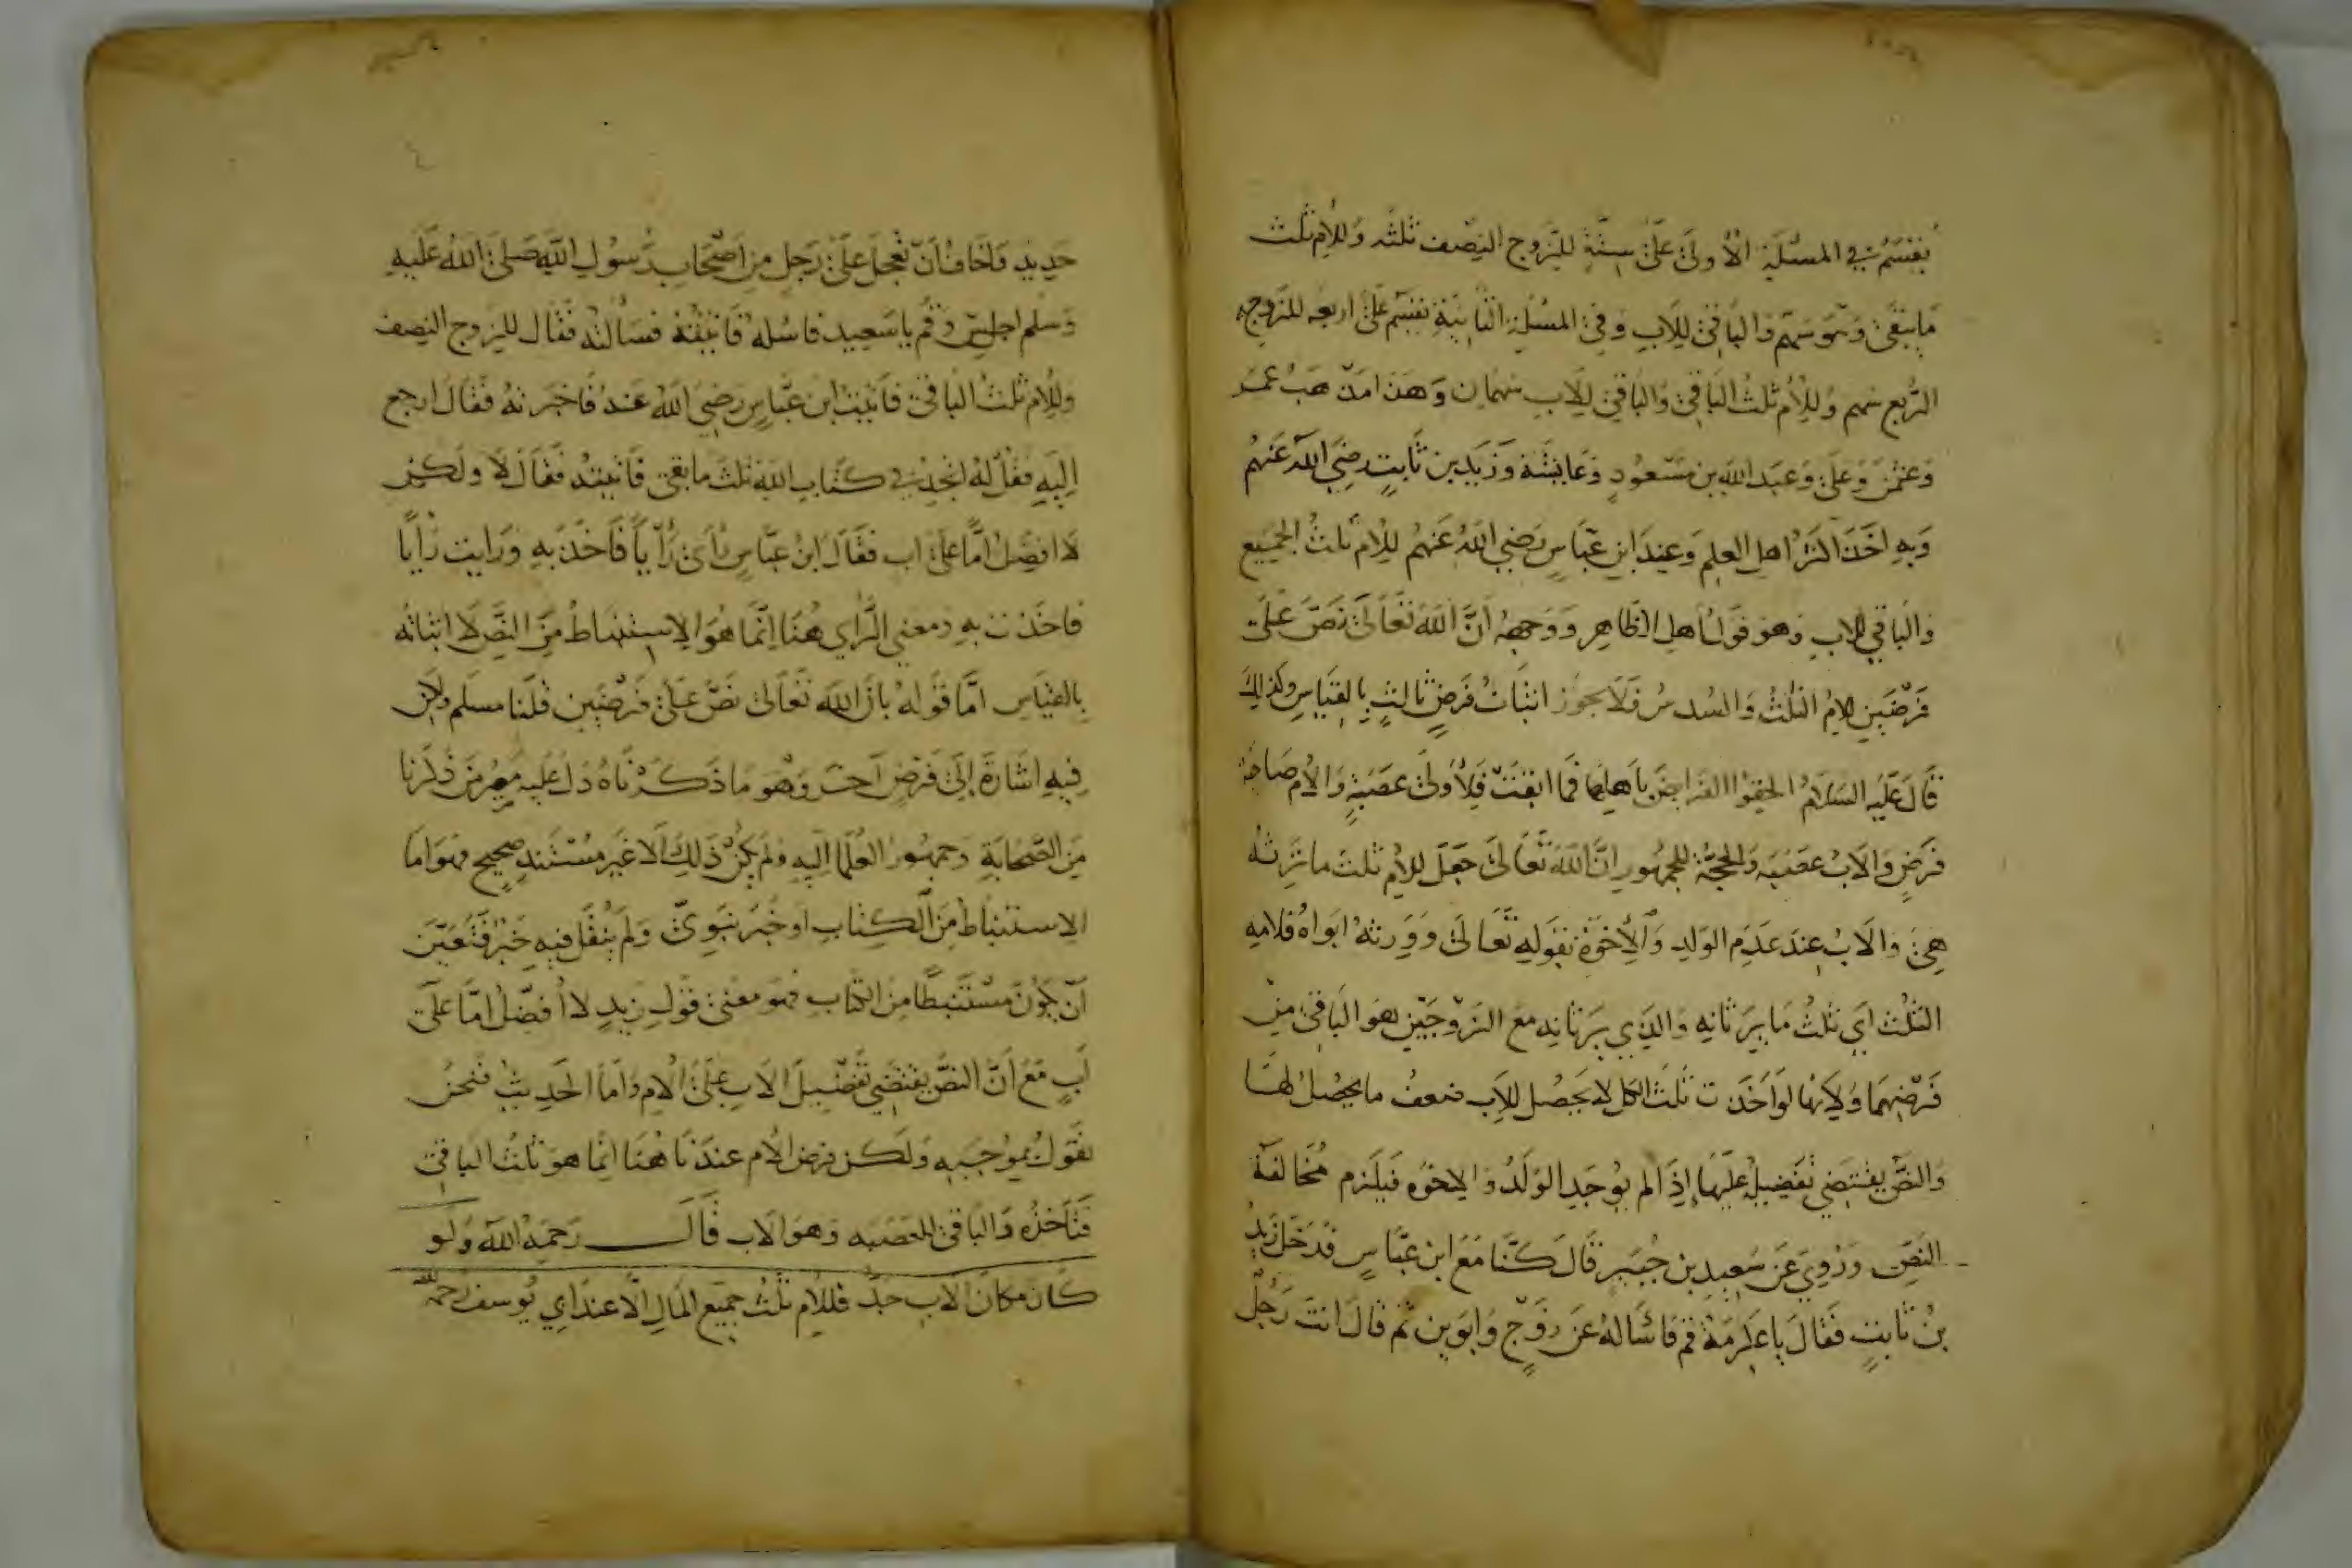 يقسم في المسئلة الاولى على ستة للزوج النصف ثلثه وللام ثلث
ما يبقى وهو سهم والباقي للاب وفي المسئلة الثانية تقسم على اربعه للزوجة
الربع سهم وللام ثلث الباقي والباقي للاب سهمان وهذا مذهب عمر
وعثمن وعلي وعبد الله بن مسعود وعايشة وزيد بن ثابت رضي الله عنهم
وبه اخذ اكثر اهل العلم وعند ابن عباس رضي الله عنهم للام ثلث الجميع
والباقي للاب وهو قول اهل الظاهر ووجهه ان الله تعالى نص على
فرضين للام الثلث والسدس فلا يجوز اثبات فرض ثالث بالقياس وكذلك
قال عليه السلام الحقوا الفرايض باهلها فما ابقت فلاولى عصبة والام صاحبة
فرض والاب عصبه والحجة للجمهور ان الله تعالى جعل للام ثلث ما ترثه
هي والاب عند عدم الولد والاخوة بقوله تعالى وورثه ابواه فلامه
الثلث اي ثلث ما يرثانه والذي يرثانه مع الزوجين هو الباقي من
فرضهما ولانها لو اخذت ثلث الكل لا يحصل للاب ضعف ما يحصل لها
والنص يقتضي تفضيله عليها اذا لم يوجد الولد والاخوه فيلزم مخالفة
النص وروي عن سعيد بن جبير قال كنا مع ابن عباس فدخل زيد
بن ثابت فقال يا عكرمة قم فاساله عن زوج وابوين ثم قال انت رجل
حديد واخاف ان تعجل على رجل من اصحاب رسول الله صلى الله عليه
وسلم اجلس وقم يا سعيد فاسله فاتيته فسالته فقال للزوج النصف
وللام ثلث الباقي فاتيت ابن عباس رضي الله عنه فاخبرته فقال ارجع
اليه فقل له اتجد في كتاب الله ثلث ما بقي فاتيته فقال لا ولكن
لا افضل اما على اب فقال ابن عباس راى رأيا فاخذ به ورايت رأيا
فاخذت به ومعنى الراي هنا انما هو الاستنباط من النص لا اثباته
بالقياس اما قوله بان الله تعالى نص على فرضين قلنا مسلم ولكن
فيه اشارة الى فرض اخر وهو ما ذكرناه دل عليه مصير من ذكرنا
من الصحابة وجمهور العلما اليه ولم يكن ذلك الا عن مستند صحيح وهو اما
الاستنباط من الكتاب او خبر نبوي ولم ينقل فيه خبر فتعين
ان يكون مستنبطا من الكتاب فهو معنى قول زيد لا افضل اما على
اب مع ان النص يقتضي تفضيل الاب على الام واما الحديث فنحن
نقول بموجبه ولكن فرض الام عندنا هنا انما هو ثلث الباقي
فتاخذه والباقي للعصبه وهو الاب قال رحمه الله ولو
كان مكان الاب جد فللام ثلث جميع المال الا عند ابي يوسف رحمه الله